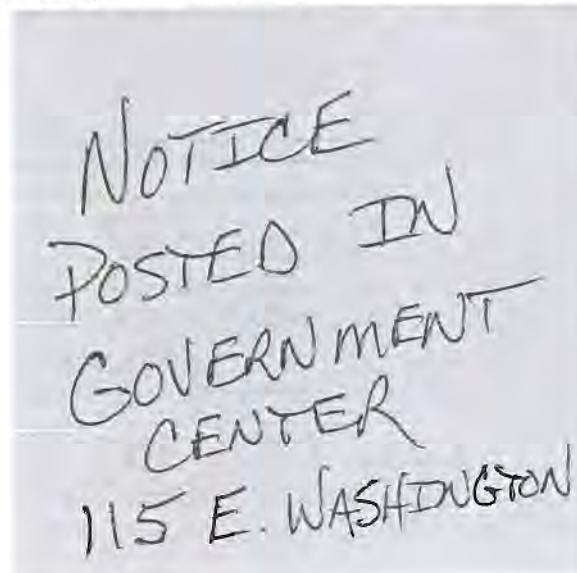 NOTICE
POSTED IN
GOVERNMENT
CENTER
115 E. WASHINGTON